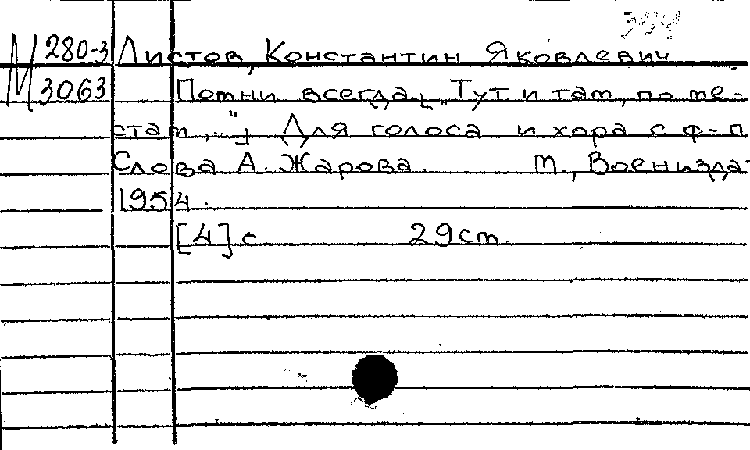 М 280-3 Листов, Константин Яковлевич.
3063 Помни всегда [„Тут и там, по ме-
стам,..."] Для голоса и хора с ф-п
Слова А. Жарова. М., Воениздат
1954.
[4] с 29 ст.